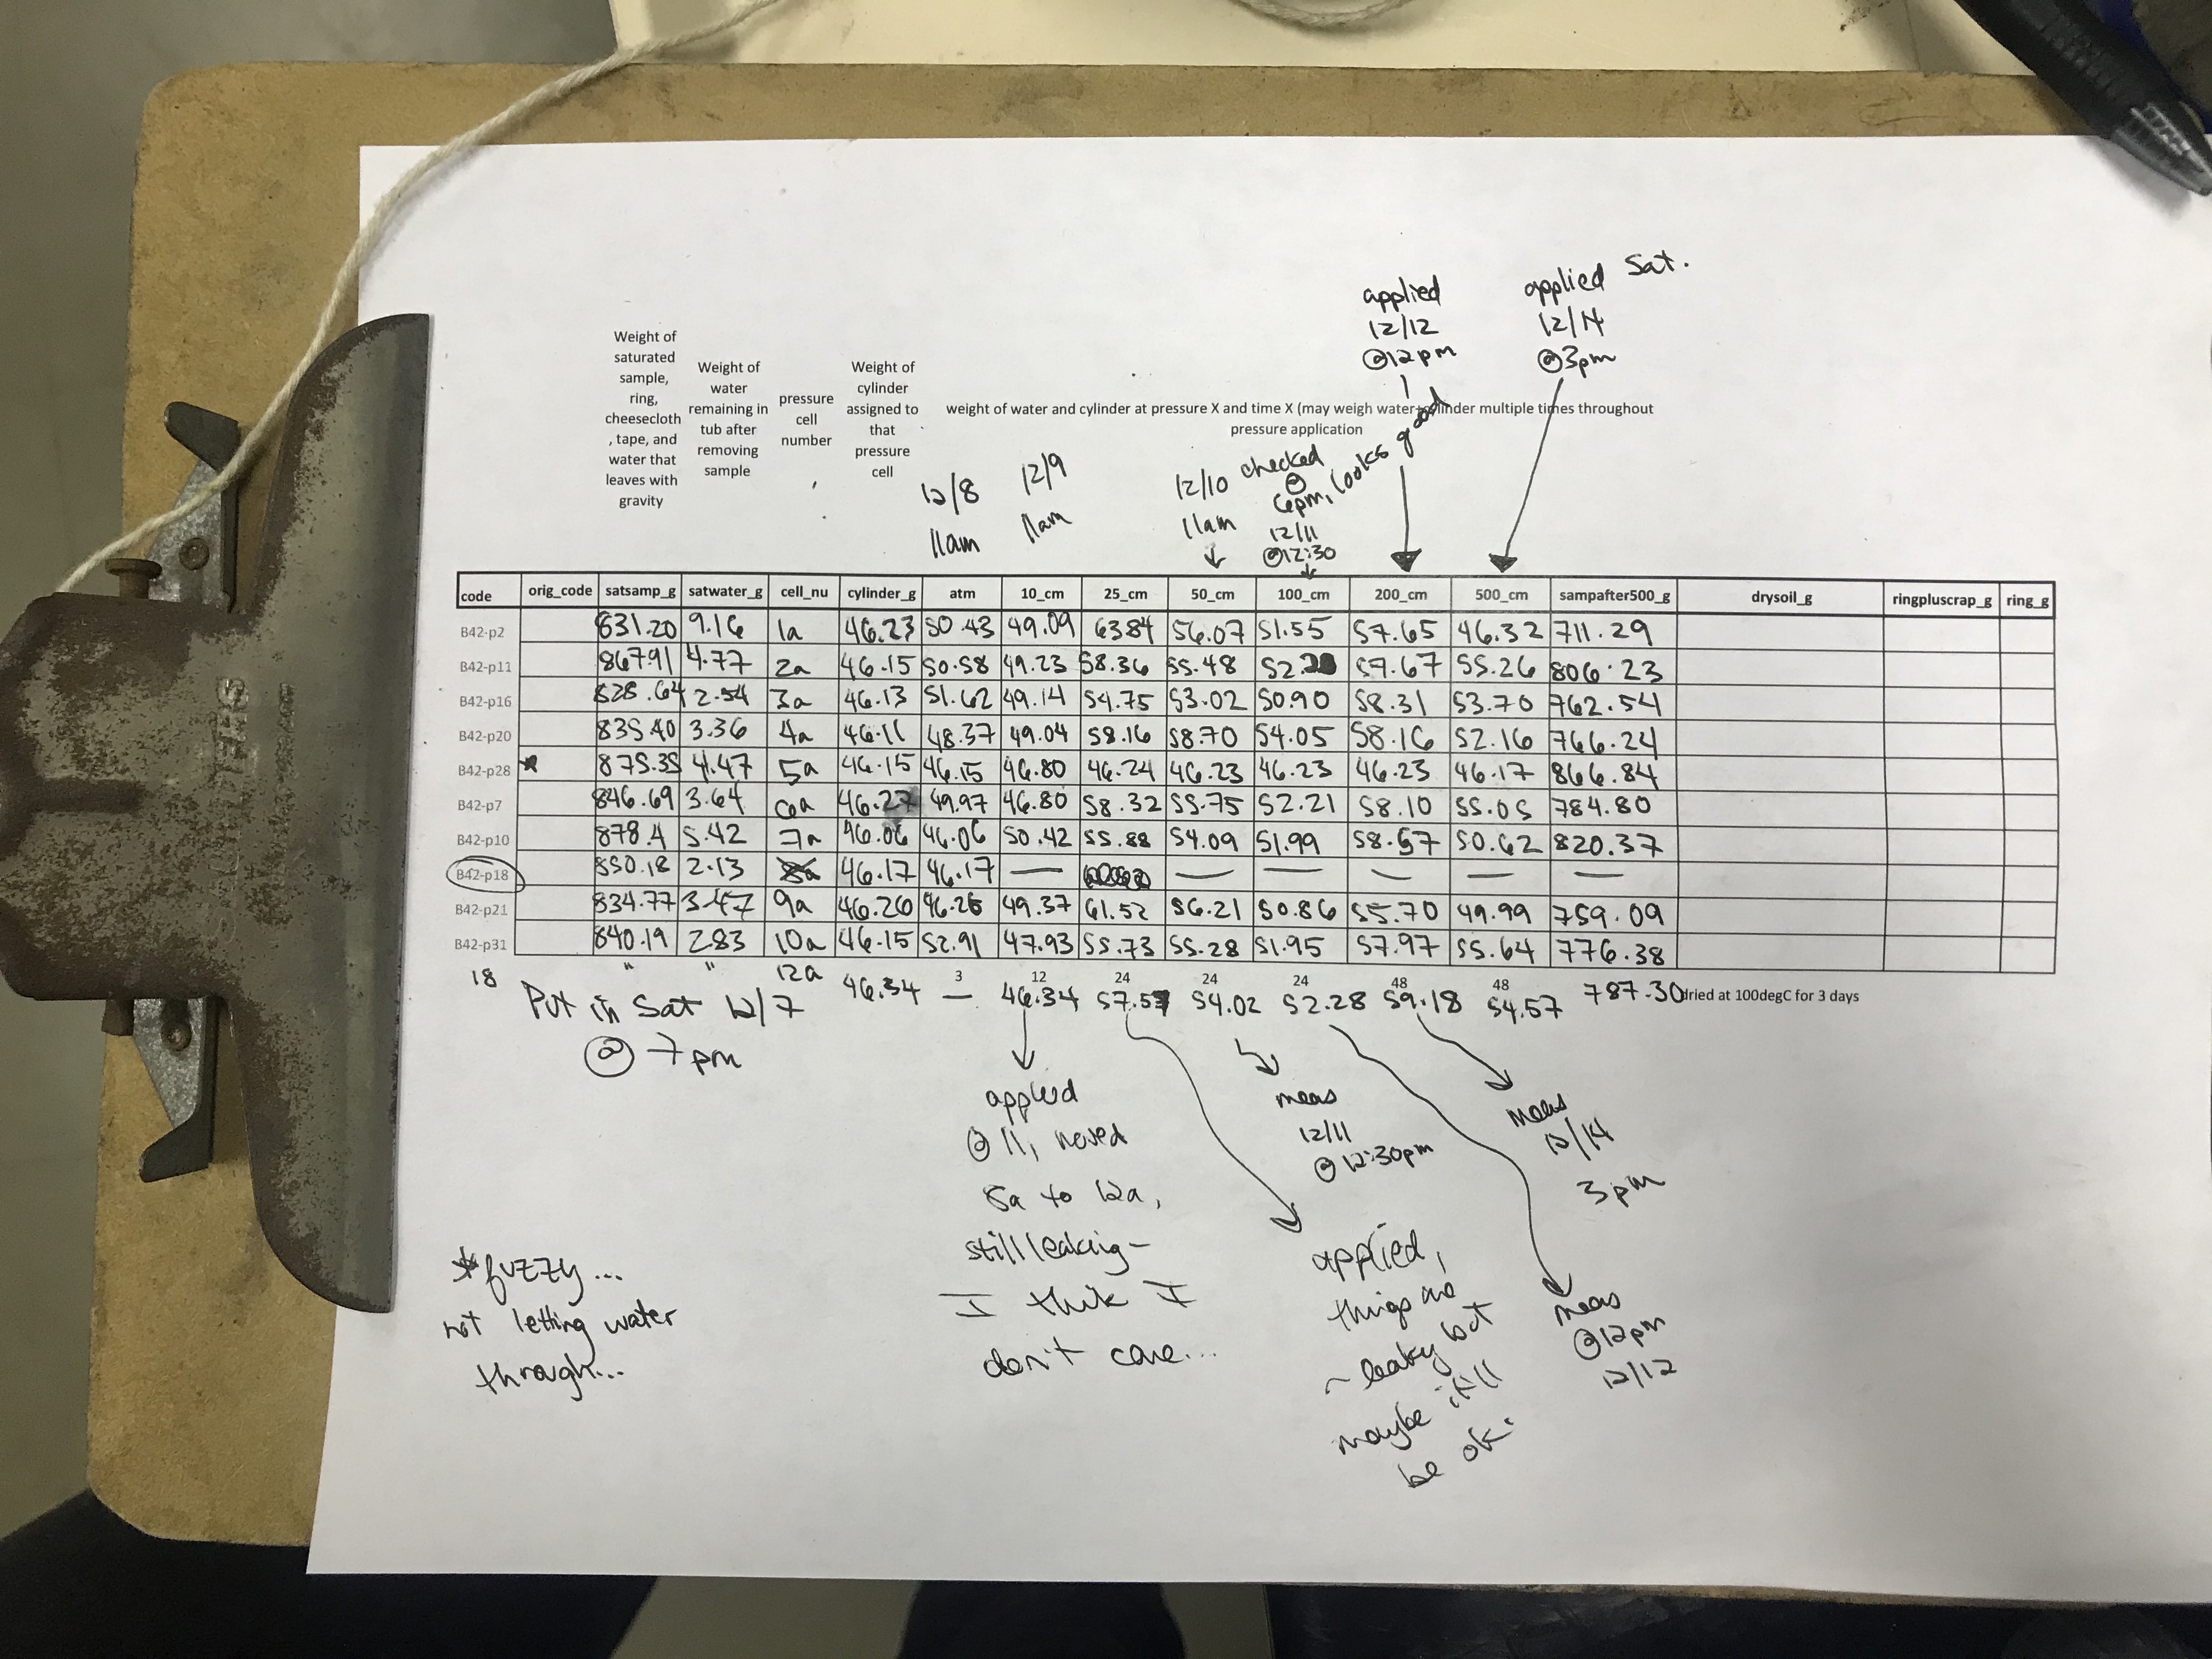 applied Sat.
12/14
@3pm
applied
12/12
@12pm
Weight of
saturated
sample,
ring,
cheesecloth
, tape, and
water that
leaves with
gravity
Weight of
water
remaining in
tub after
removing
sample
pressure
cell
number
Weight of
cylinder
assigned to
that
pressure
cell
weight of water and cylinder at pressure X and time X (may weigh water+cylinder multiple times throughout
pressure application
12/8
11am
12/9
11am
12/10
11am
checked
@
6pm, looks good
12/11
@12:30
code orig_code satsamp_g satwater_g cell_nu cylinder_g atm 10_cm 25_cm 50_cm 100_cm 200_cm 500_cm sampafter500_g drysoil_g ringpluscrap_g ring_g
B42-p2 831.20 9.16 1a 46.23 50.43 49.09 63.84 56.07 51.55 57.65 46.32 711.29
B42-p11 867.91 4.77 2a 46.15 50.58 49.23 58.36 55.48 57.67 55.26 806.23
B42-p16 828.64 2.54 3a 46.13 51.62 49.14 54.75 53.02 50.90 58.31 53.70 762.54
B42-p20 835.40 3.36 4a 46.11 48.37 49.04 58.16 58.70 54.05 58.16 52.16 766.24
B42-p28 * 875.35 4.47 5a 46.15 46.15 46.80 46.24 46.23 46.23 46.23 46.17 866.84
B42-p7 846.69 3.64 6a 46.27 49.97 46.80 58.32 55.75 52.21 58.10 55.05 784.80
B42-p10 878.4 5.42 7a 46.06 46.06 50.42 55.88 54.09 51.99 58.57 50.62 820.37
B42-p18 850.18 2.13 8a 46.17 46.17 — — — — — —
B42-p21 834.77 3.47 9a 46.26 46.26 49.37 61.52 56.21 50.86 55.70 49.99 759.09
B42-p31 840.19 2.83 10a 46.15 52.91 47.93 55.73 55.28 51.95 57.97 55.64 776.38
3 12 24 24 24 48 48
18 " " 12a 46.34 — 46.34 57.57 54.02 52.28 59.18 54.57 787.30 dried at 100degC for 3 days
Put in Sat 12/7
@ 7pm
applied
@ 11, moved
8a to 12a,
still leaking –
I think I
don't care...
meas
12/11
@ 12:30pm
meas
12/14
3pm
applied,
things are
~ leaky but
maybe it'll
be ok.
meas
@12pm
12/12
* fuzzy...
not letting water
through...